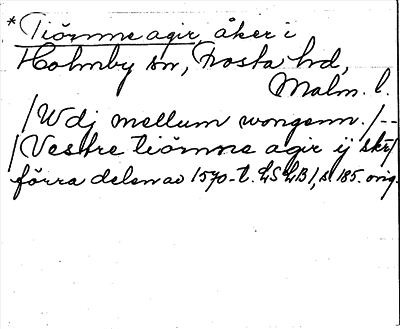 *Tiörnne agir, åker i
Holmby sn, Frosta hd,
Malm. l.
/Wdj mellum wongenn./--
/Vestre tiörnne agir ij skr/
förra delen av 1570-t. LSLB1, s. 185. orig.